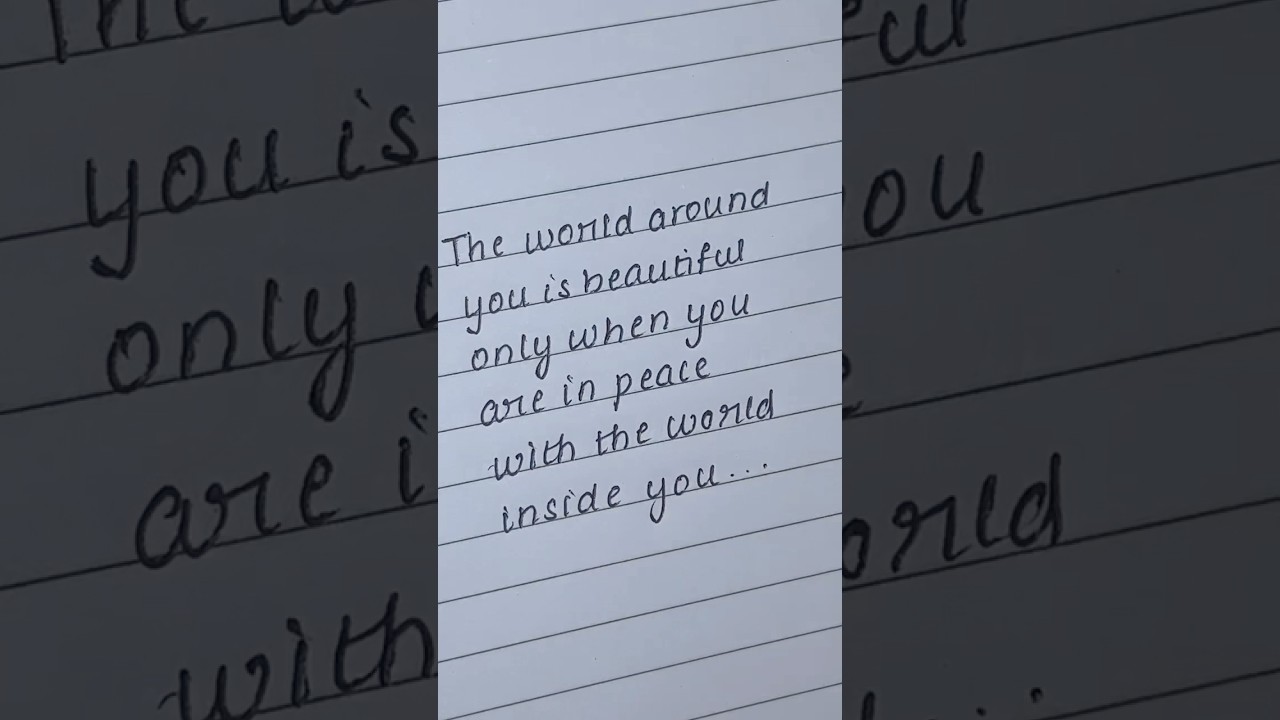 The world around
you is beautiful
only when you
are in peace
with the world
inside you...